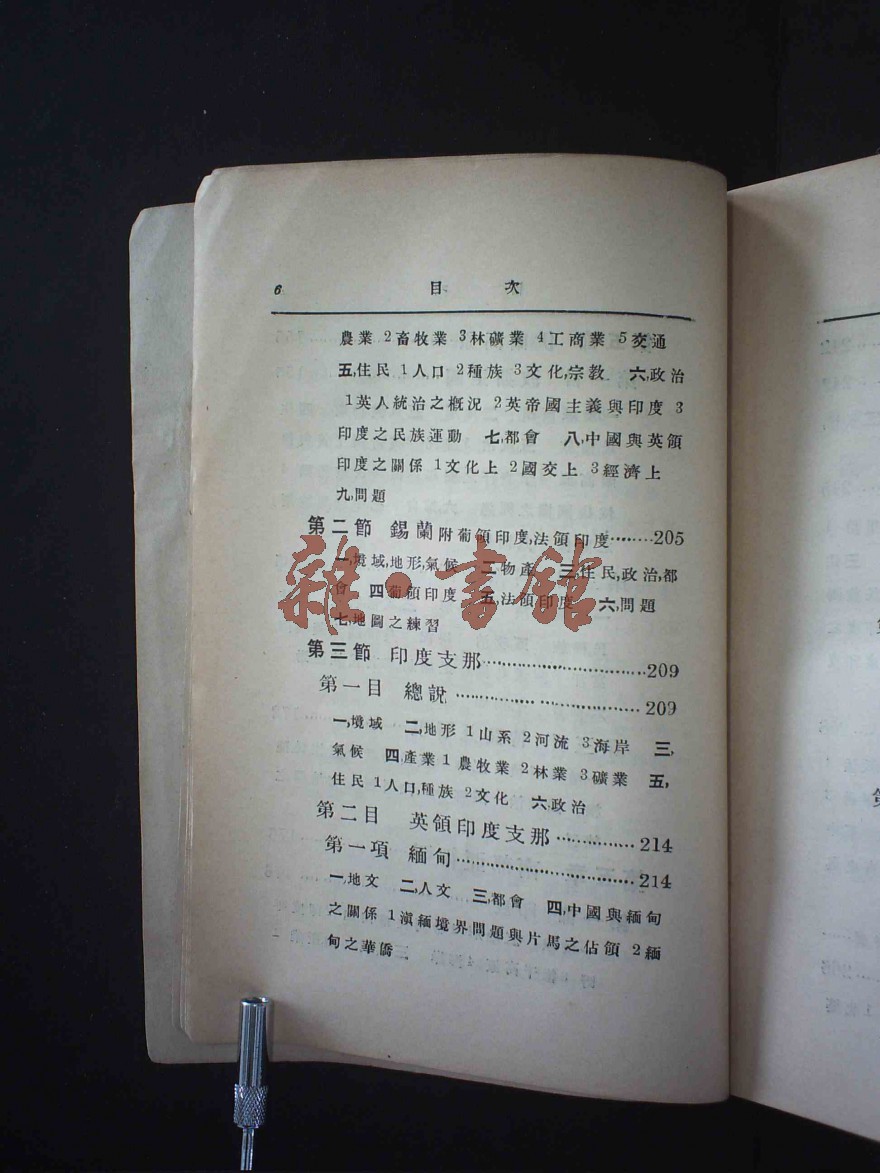 6 目次
農業 2畜牧業 3林礦業 4工商業 5交通
五,住民 1人口 2種族 3文化,宗教 六,政治
1英人統治之概況 2英帝國主義與印度 3
印度之民族運動 七,都會 八,中國與英領
印度之關係 1文化上 2國交上 3經濟上
九,問題
第二節 錫蘭附葡領印度,法領印度………205
一,境域,地形,氣候 二,物產 三,住民,政治,都
會 四,葡領印度 五,法領印度 六,問題
七,地圖之練習
第三節 印度支那………………………209
第一目 總說………………………209
一,境域 二,地形 1山系 2河流 3海岸 三,
氣候 四,產業 1農牧業 2林業 3礦業 五,
住民 1人口,種族 2文化 六,政治
第二目 英領印度支那……………214
第一項 緬甸………………………214
一,地文 二,人文 三,都會 四,中國與緬甸
之關係 1滇緬境界問題與片馬之佔領 2緬
甸之華僑 三
雜·書館
242
第